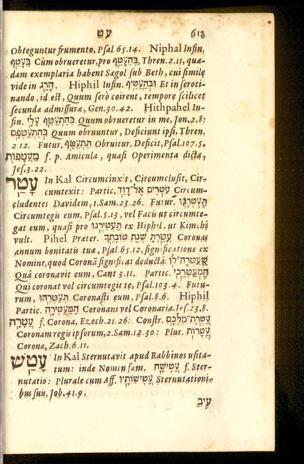 עט 613
Obteguntur frumento, Psal 65.14. Niphal Infin.
בְּעֲטֹף Cùm obrueretur, pro בְּהֵעָטֵף, Thren. 2.11, quæ-
dam exemplaria habent Sagol sub Beth, cui simile
vide in Hiphil Infin. וּבְהַעֲטִיף Et in seroti-
nando, id est, Quum serò coirent, tempore scilicet
secundæ admissuræ, Gen. 30.42. Hithpahel In-
fin. בְּהִתְעַטֵּף עָלַי Quum obrueretur in me, Jon. 2.8:
בְּהִתְעַטְּפָם Quum obruuntur, Deficiunt ipsi, Thren.
2.12. Futur. תִּתְעַטָּף Obruitur, Deficit, Psal. 107.5.
מַעֲטָפוֹת f. p. Amicula, quasi Operimenta dicta,
Jes. 3.22.
עָטַר In Kal Circumcinxit, Circumclusit, Cir-
cumtexit: Partic. עֹטְרִים אֶל־דָּוִד Circum-
cludentes Davidem, 1. Sam. 23.26. Futur.
תַּעְטְרֶנּוּ Circumtegis eum, Psal. 5.13, vel Facis ut circumte-
gat eum, quasi pro תַּעֲטִירֶנּוּ ex Hiphil, ut Kimhi
vult. Pihel Præter. עִטַּרְתָּ שְׁנַת טוֹבָתֶךָ Coronas
annum bonitatis tuæ, Psal 65.12, significatione ex
Nomine, quod Coronã significat deductâ: שֶׁעִטְּרָה־לּוֹ
Quâ coronavit eum, Cant 3.11. Partic. הַמְעַטְּרֵכִי
Qui coronat vel circumtegit te, Psal. 103.4. Futu-
rum, תְּעַטְּרֵהוּ Coronasti eum, Psal. 8.6. Hiphil
Partic. הַמַּעֲטִירָה Coronans vel Coronaria. Jes. 23.8.
עֲטָרָה f. Corona, Ezech. 21.26: Constr. עֲטֶרֶת־מַלְכָּם
Coronam regis ipsorum, 2. Sam. 12.30: Plur. עֲטָרוֹת
Corona, Zach. 6.11.
עָטַשׁ In Kal Sternutavit apud Rabbinos usita-
tum: inde Nomen fœm. עֲטִישָׁה f. Ster-
nutatio: Plurale cum Aff. עֲטִישׁוֹתָיו Sternutationi-
bus suis, Job. 41.9.
עיב